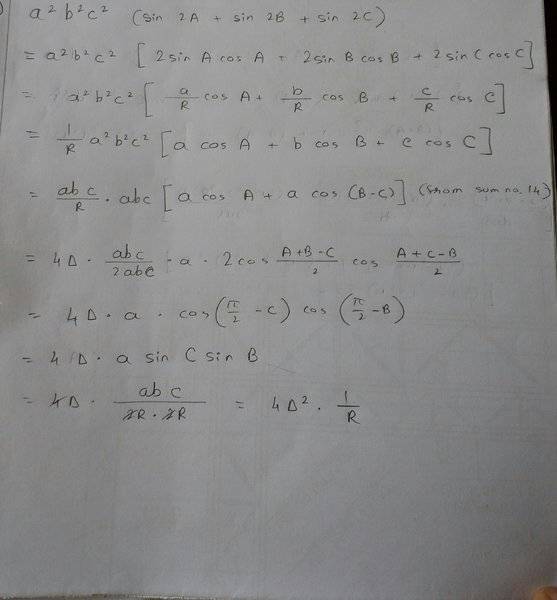 a² b² c² (sin 2A + sin 2B + sin 2C)
= a² b² c² [ 2 sin A cos A + 2 sin B cos B + 2 sin C cos C ]
= a² b² c² [ a/R cos A + b/R cos B + c/R cos C ]
= 1/R a² b² c² [ a cos A + b cos B + c cos C ]
= abc/R · abc [ a cos A + a cos (B-C) ] (from sum no. 14)
= 4Δ · abc/2abc · a · 2 cos A+B-C/2 cos A+C-B/2
= 4Δ · a · cos (π/2 - C) cos (π/2 - B)
= 4Δ · a sin C sin B
= 4Δ · abc/2R · 2R = 4Δ² · 1/R